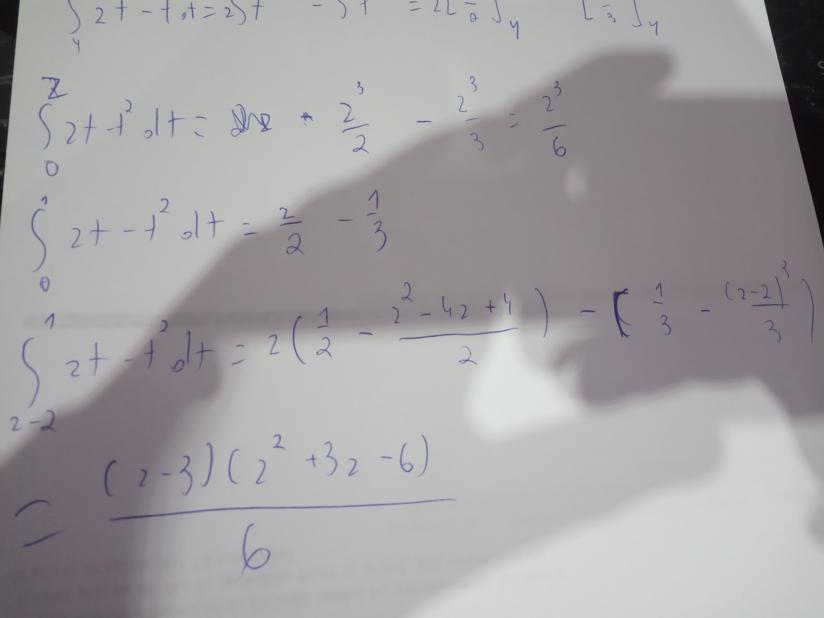 ∫₄ zt - t dt = z∫t - ∫t = z[ ]₄ [ ]₄
∫₀ᶻ zt - t² dt = z³/2 - z³/3 = z³/6
∫₀¹ zt - t² dt = z/2 - 1/3
∫_{z-2}^1 zt - t² dt = z(1/2 - (z² - 4z + 4)/2) - (1/3 - (z-2)³/3)
= (z-3)(z² + 3z - 6)/6